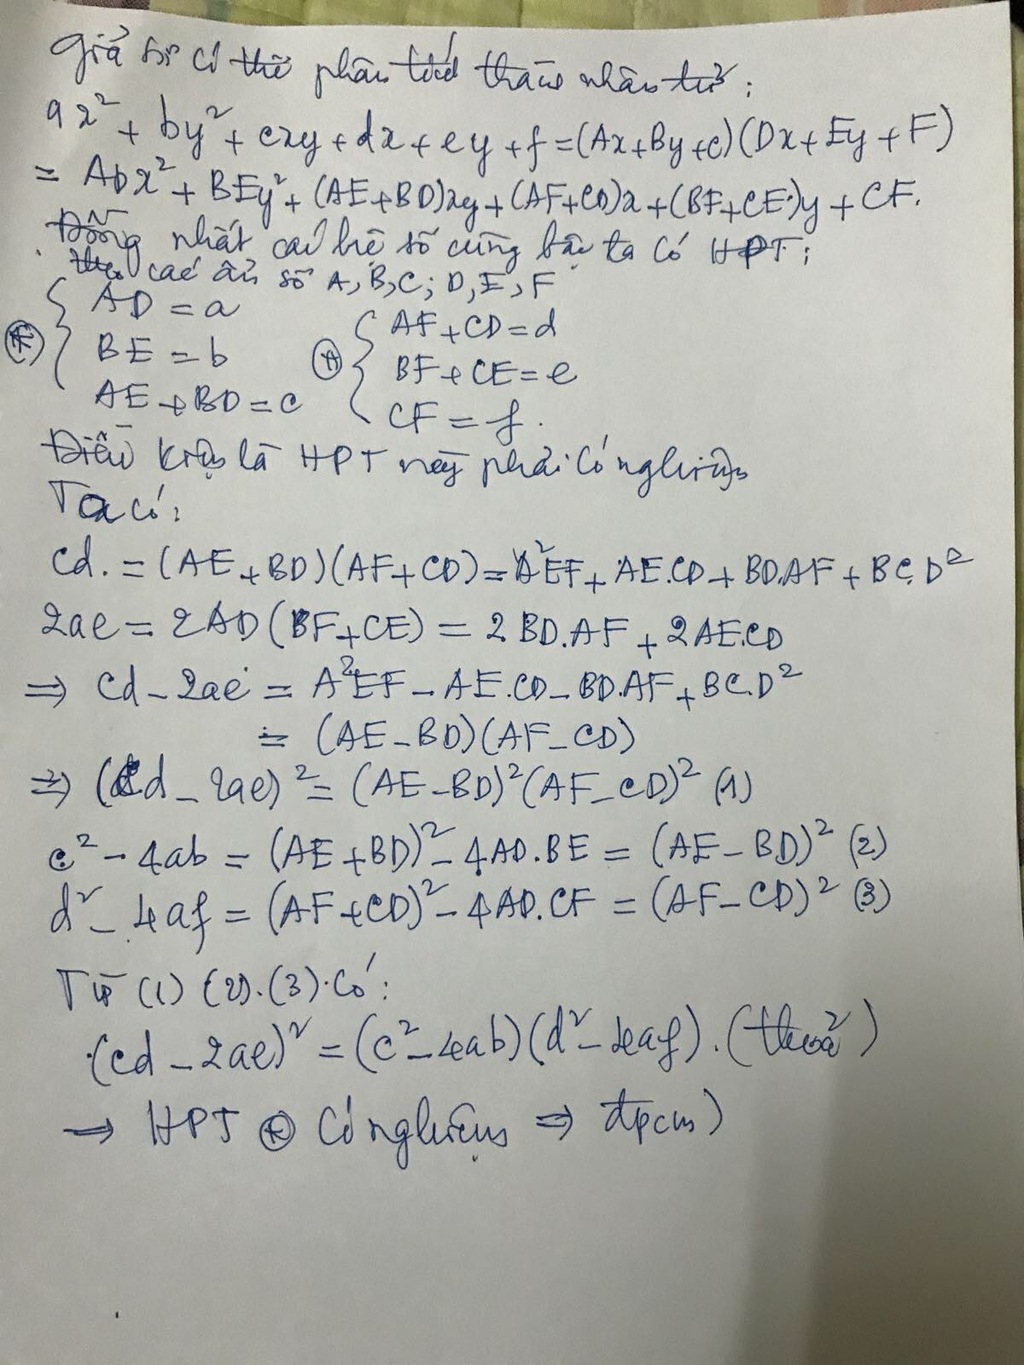 Giả sử có thể phân tích thành nhân tử:
ax² + by² + cxy + dx + ey + f = (Ax + By + C)(Dx + Ey + F)
= ADx² + BEy² + (AE+BD)xy + (AF+CD)x + (BF+CE)y + CF.
Đồng nhất các hệ số cùng bậc ta có HPT;
theo các ẩn số A, B, C; D, E, F
AD = a
BE = b
AE + BD = c
AF + CD = d
BF + CE = e
CF = f.
Điều kiện là HPT này phải có nghiệm
Ta có:
cd. = (AE + BD)(AF + CD) = A²EF + AE.CD + BD.AF + BC.D²
2ae = 2AD (BF + CE) = 2BD.AF + 2AE.CD
⇒ cd - 2ae = A²EF - AE.CD - BD.AF + BC.D²
= (AE - BD)(AF - CD)
⇒ (cd - 2ae)² = (AE - BD)²(AF - CD)² (1)
c² - 4ab = (AE + BD)² - 4AD.BE = (AE - BD)² (2)
d² - 4af = (AF + CD)² - 4AD.CF = (AF - CD)² (3)
Từ (1) (2). (3). Có:
(cd - 2ae)² = (c² - 4ab)(d² - 4af). (thoả)
⇒ HPT ⊛ Có nghiệm ⇒ đpcm)